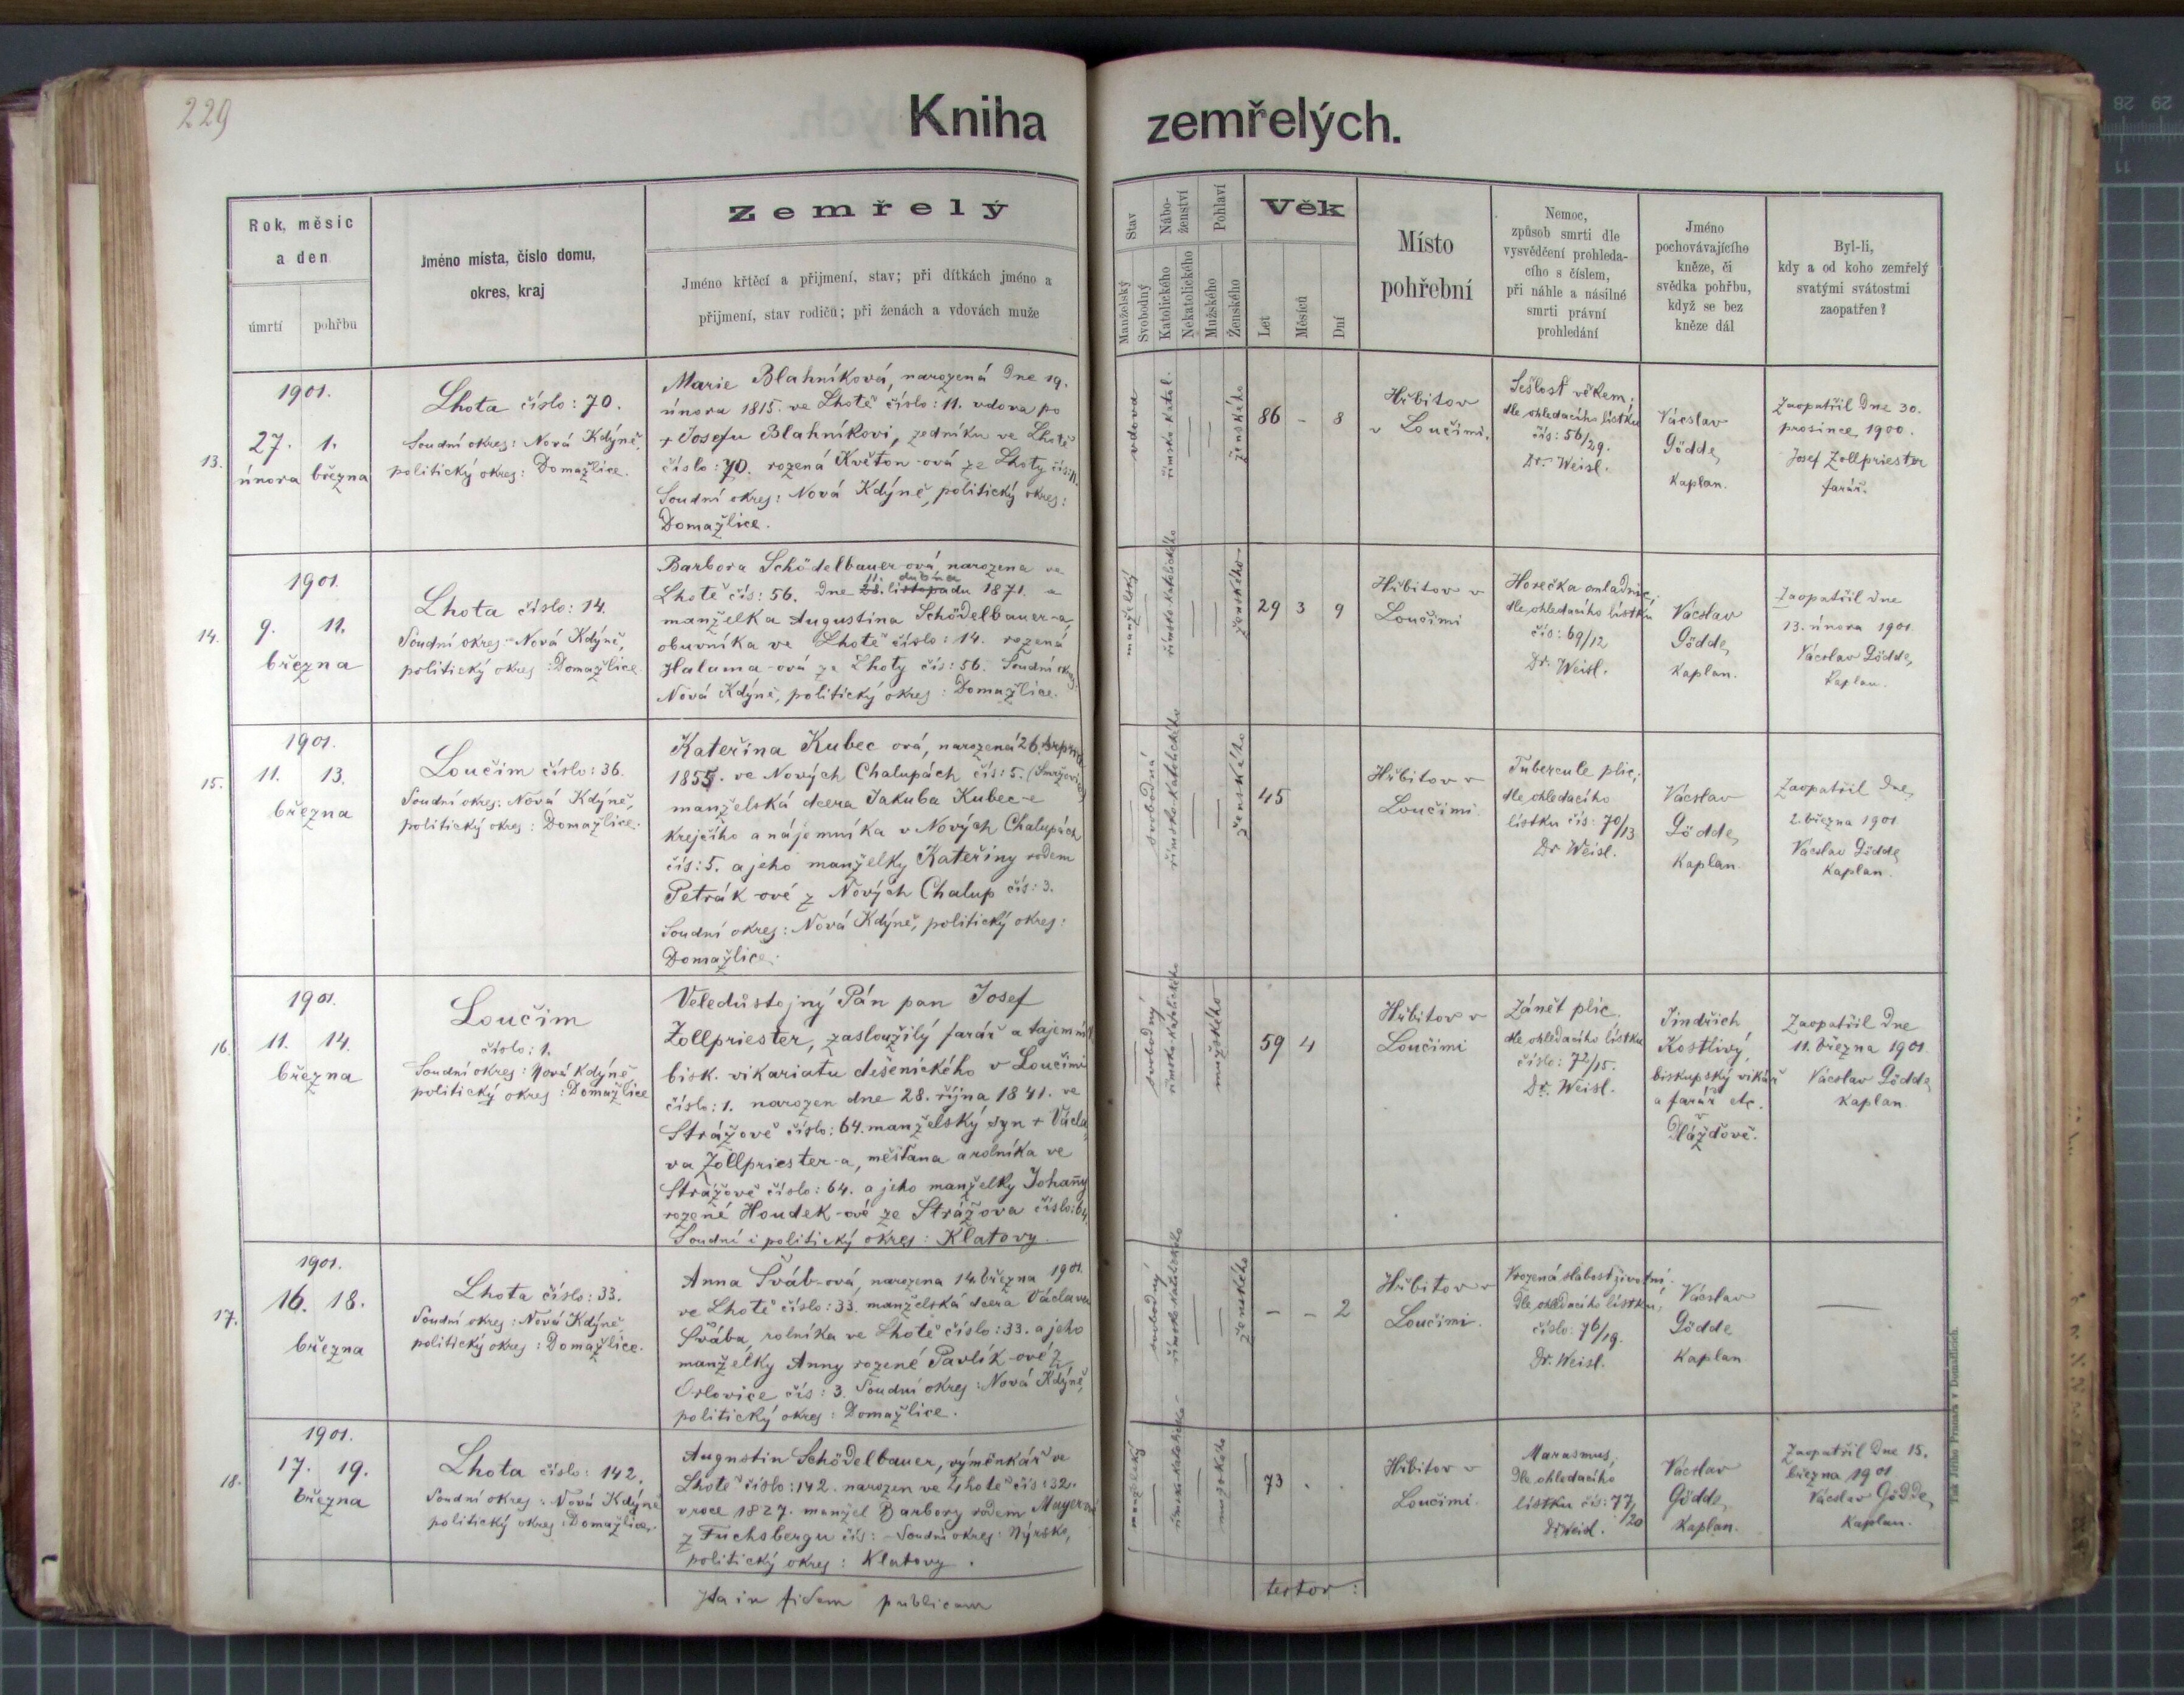 229
Kniha zemřelých.
Rok, měsíc
a den
úmrtí pohřbu
Jméno místa, číslo domu,
okres, kraj
Zemřelý
Jméno křtěcí a přijmení, stav; při dítkách jméno a
přijmení, stav rodičů; při ženách a vdovách muže
Stav
Manželský
Svobodný
Nábo-
ženství
Katolického
Nekatolického
Pohlaví
Mužského
Ženského
Věk
Let
Měsíců
Dní
Místo
pohřební
Nemoc,
způsob smrti dle
vysvědčení prohleda-
cího s číslem,
při náhle a násilné
smrti právní
prohledání
Jméno
pochovávajícího
kněze, či
svědka pohřbu,
když se bez
kněze dál
Byl-li,
kdy a od koho zemřelý
svatými svátostmi
zaopatřen?
13.
1901.
27. 1.
února března
Lhota číslo: 70.
Soudní okres: Nová Kdýně,
politický okres: Domažlice.
Marie Blahníková, narozená dne 19.
února 1815. ve Lhotě číslo: 11. vdova po
+ Josefu Blahníkovi, zedníku ve Lhotě
číslo: 70. rozená Květon-ová ze Lhoty čís: 11.
Soudní okres: Nová Kdýně, politický okres:
Domažlice.
vdova
římsko katol.
ženského
86 - 8
Hřbitov
v Loučimi.
Sešlost věkem;
dle ohledacího lístku
čís: 56/29.
Dr. Weisl.
Vácslav
Gödde,
kaplan.
Zaopatřil dne 30.
prosince 1900.
Josef Zollpriester
farář.
14.
1901.
9. 11.
března
Lhota číslo: 14.
Soudní okres Nová Kdýně,
politický okres: Domažlice.
Barbora Schödelbauer-ová, narozena ve
11. dubna
Lhotě čís: 56. dne 28. listopadu 1871. a
manželka Augustina Schödelbauer-a,
obuvníka ve Lhotě číslo: 14. rozená
Halama-ová ze Lhoty čís: 56. Soudní okres:
Nová Kdýně, politický okres: Domažlice.
manželský
římsko katolického
ženského
29 3 9
Hřbitov v
Loučimi
Horečka omladnic,
dle ohledacího lístku
čís: 69/12
Dr. Weisl.
Vácslav
Gödde,
kaplan.
Zaopatřil dne
13. února 1901.
Vácslav Gödde,
kaplan.
15.
1901.
11. 13.
března
Loučim číslo: 36.
Soudní okres: Nová Kdýně,
politický okres: Domažlice.
Kateřina Kubec ová, narozená 26. srpna
1855. ve Nových Chalupách čís: 5.
manželská dcera Jakuba Kubec-e
krejčího a nájemníka v Nových Chalupách
čís: 5. a jeho manželky Kateřiny rodem
Petrák-ové z Nových Chalup čís: 3.
Soudní okres: Nová Kdýně, politický okres:
Domažlice.
svobodná
římsko-katolického
ženského
45
Hřbitov v
Loučimi
Tubercule plic;
dle ohledacího
lístku čís: 70/13.
Dr Weisl.
Vácslav
Gödde,
kaplan.
Zaopatřil dne
2. března 1901
Vácslav Gödde,
kaplan.
16.
1901.
11. 14.
března
Loučim
číslo: 1.
Soudní okres: Nová Kdýně
politický okres: Domažlice
Veledůstojný Pán pan Josef
Zollpriester, zasloužilý farář a tajemník
bisk. vikariatu dešenického v Loučimi
číslo: 1. narozen dne 28. října 1841. ve
Strážově číslo: 64. manželský syn + Václa-
va Zollpriester-a, měšťana a rolníka ve
Strážově číslo: 64. a jeho manželky Johanny
rozené Houdek-ové ze Strážova číslo: 64.
Soudní i politický okres: Klatovy.
svobodný
římsko-katolického
mužského
59 4
Hřbitov v
Loučimi
Zánět plic,
dle ohledacího lístku
číslo: 72/15.
Dr. Weisl.
Jindřich
Kostlivý,
biskupský vikář
a farář etc.
v
Zaopatřil dne
11. března 1901
Vácslav Gödde,
kaplan.
17.
1901.
16. 18.
března
Lhota číslo: 33.
Soudní okres: Nová Kdýně,
politický okres: Domažlice.
Anna Šváb-ová, narozena 14. března 1901.
ve Lhotě číslo: 33. manželská dcera Václava
Švába, rolníka ve Lhotě číslo: 33. a jeho
manželky Anny rozené Pavlík-ové z
Orlovice čís: 3. Soudní okres: Nová Kdýně,
politický okres: Domažlice.
svobodný
římsko-katolického
ženského
- - 2
Hřbitov v
Loučimi.
Vrozená slabost životní
dle ohledacího lístku,
číslo: 76/19.
Dr. Weisl.
Vácslav
Gödde,
kaplan
18.
1901.
17. 19.
března
Lhota číslo: 142.
Soudní okres: Nová Kdýně
politický okres: Domažlice.
Augustin Schödelbauer, výměnkář ve
Lhotě číslo: 142. narozen ve Lhotě čís: 32.
v roce 1827. manžel Barbory rodem Mayerové
z Fuchsbergu čís: - Soudní okres: Nýrsko,
politický okres: Klatovy.
manželský
římsko-katolického
mužského
73 . .
Hřbitov v
Loučimi.
Marasmus,
dle ohledacího
lístku čís: 77/20
Dr Weisl.
Vácslav
Gödde,
kaplan.
Zaopatřil dne 15.
března 1901
Vácslav Gödde,
kaplan.
Ita in fidem publicam
testor: